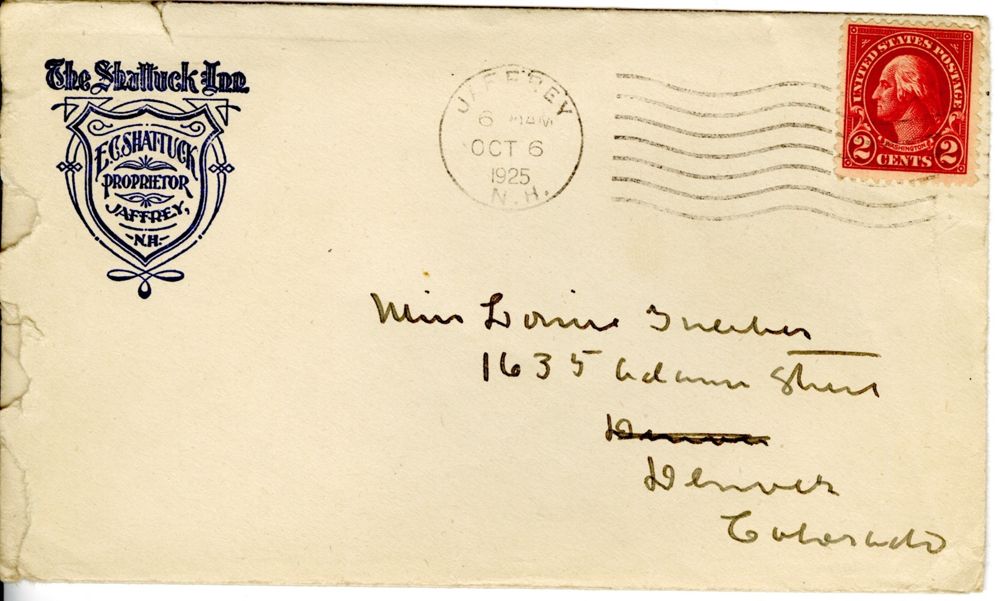 The Shattuck Inn
E.C. SHATTUCK
PROPRIETOR
JAFFREY,
-N.H.-
JAFFREY
6 AM
OCT 6
1925
N.H.
UNITED STATES POSTAGE
WASHINGTON
2 CENTS 2
Miss Louise
1635 Adams Street
Denver
Denver
Colorado